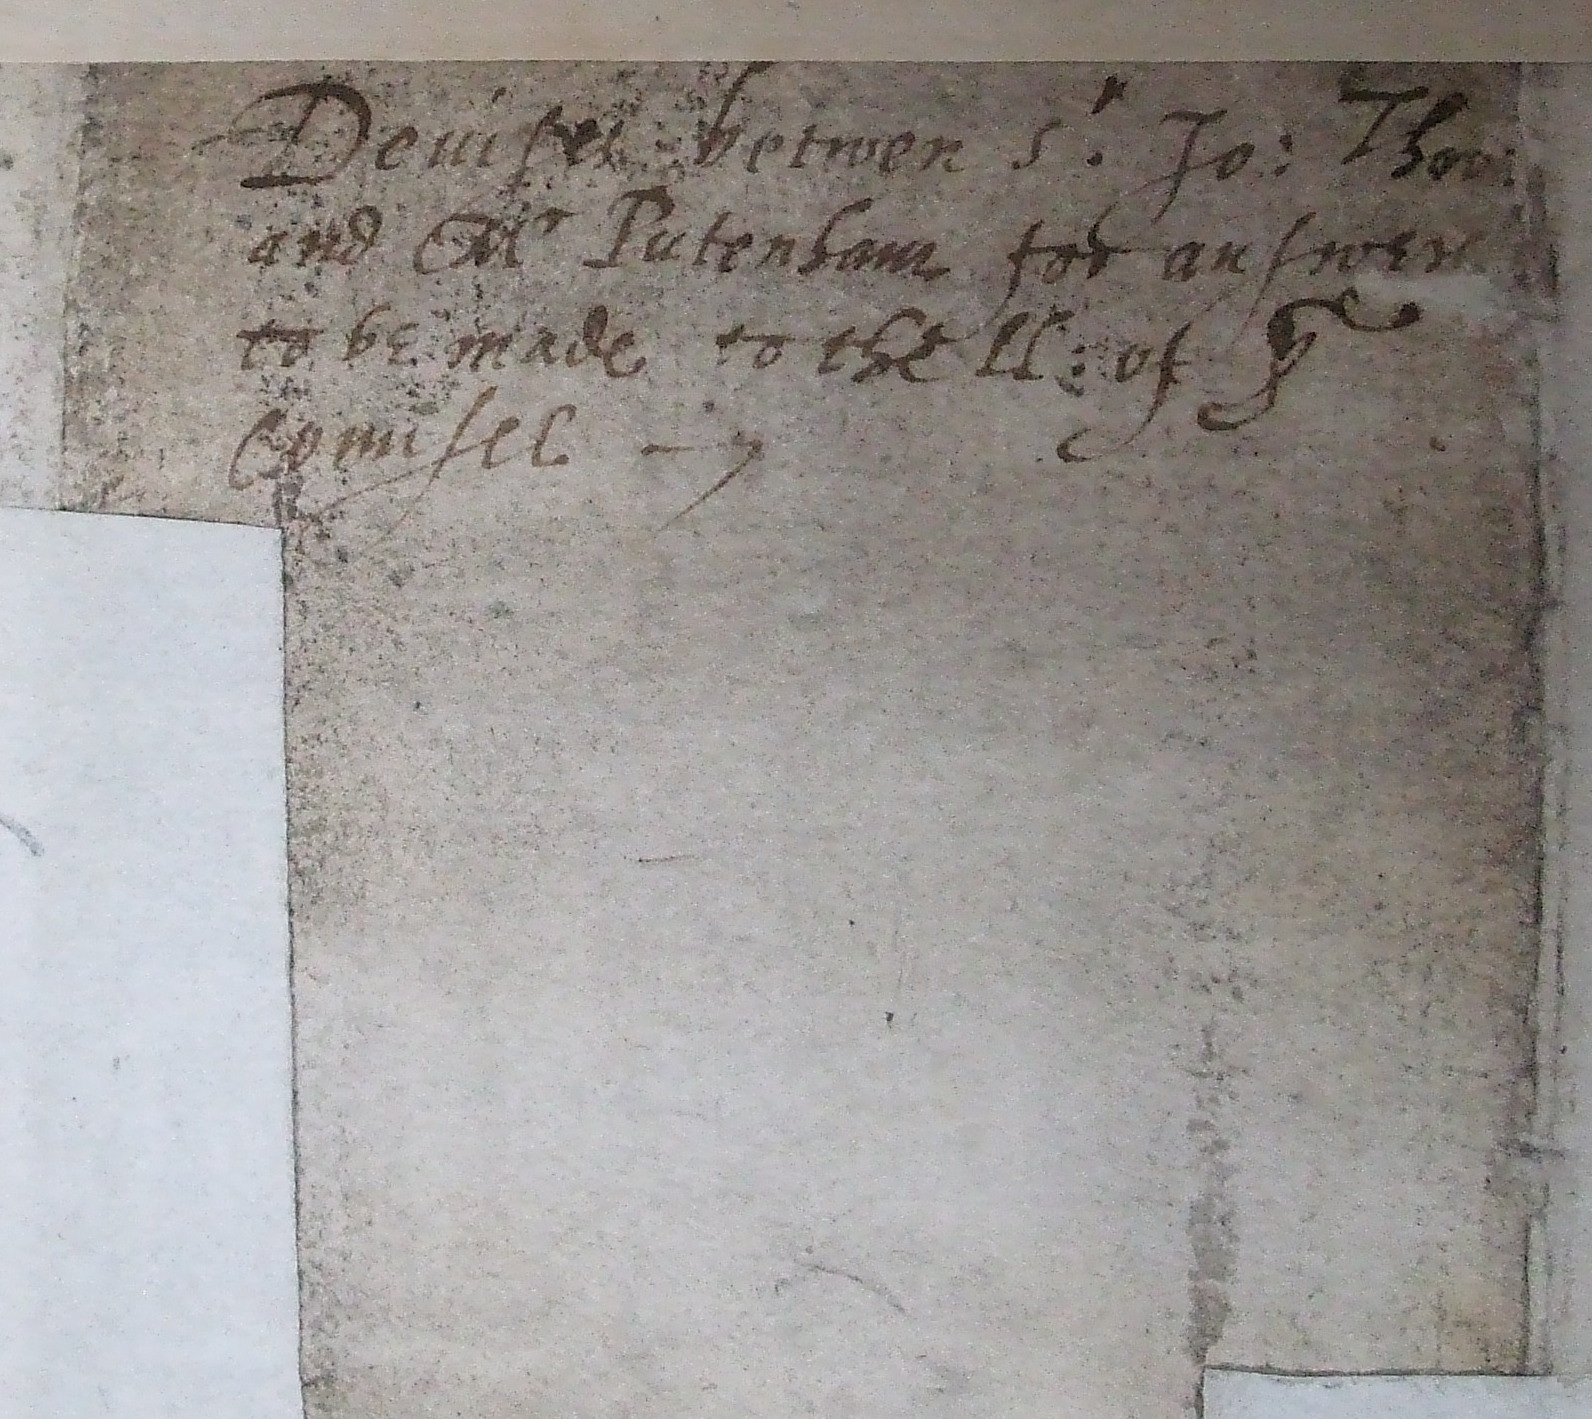 Deuises betwen Sr. Jo: Thro:
and Mr Putenham for answer
to be made to the ll: of ye
Counsel